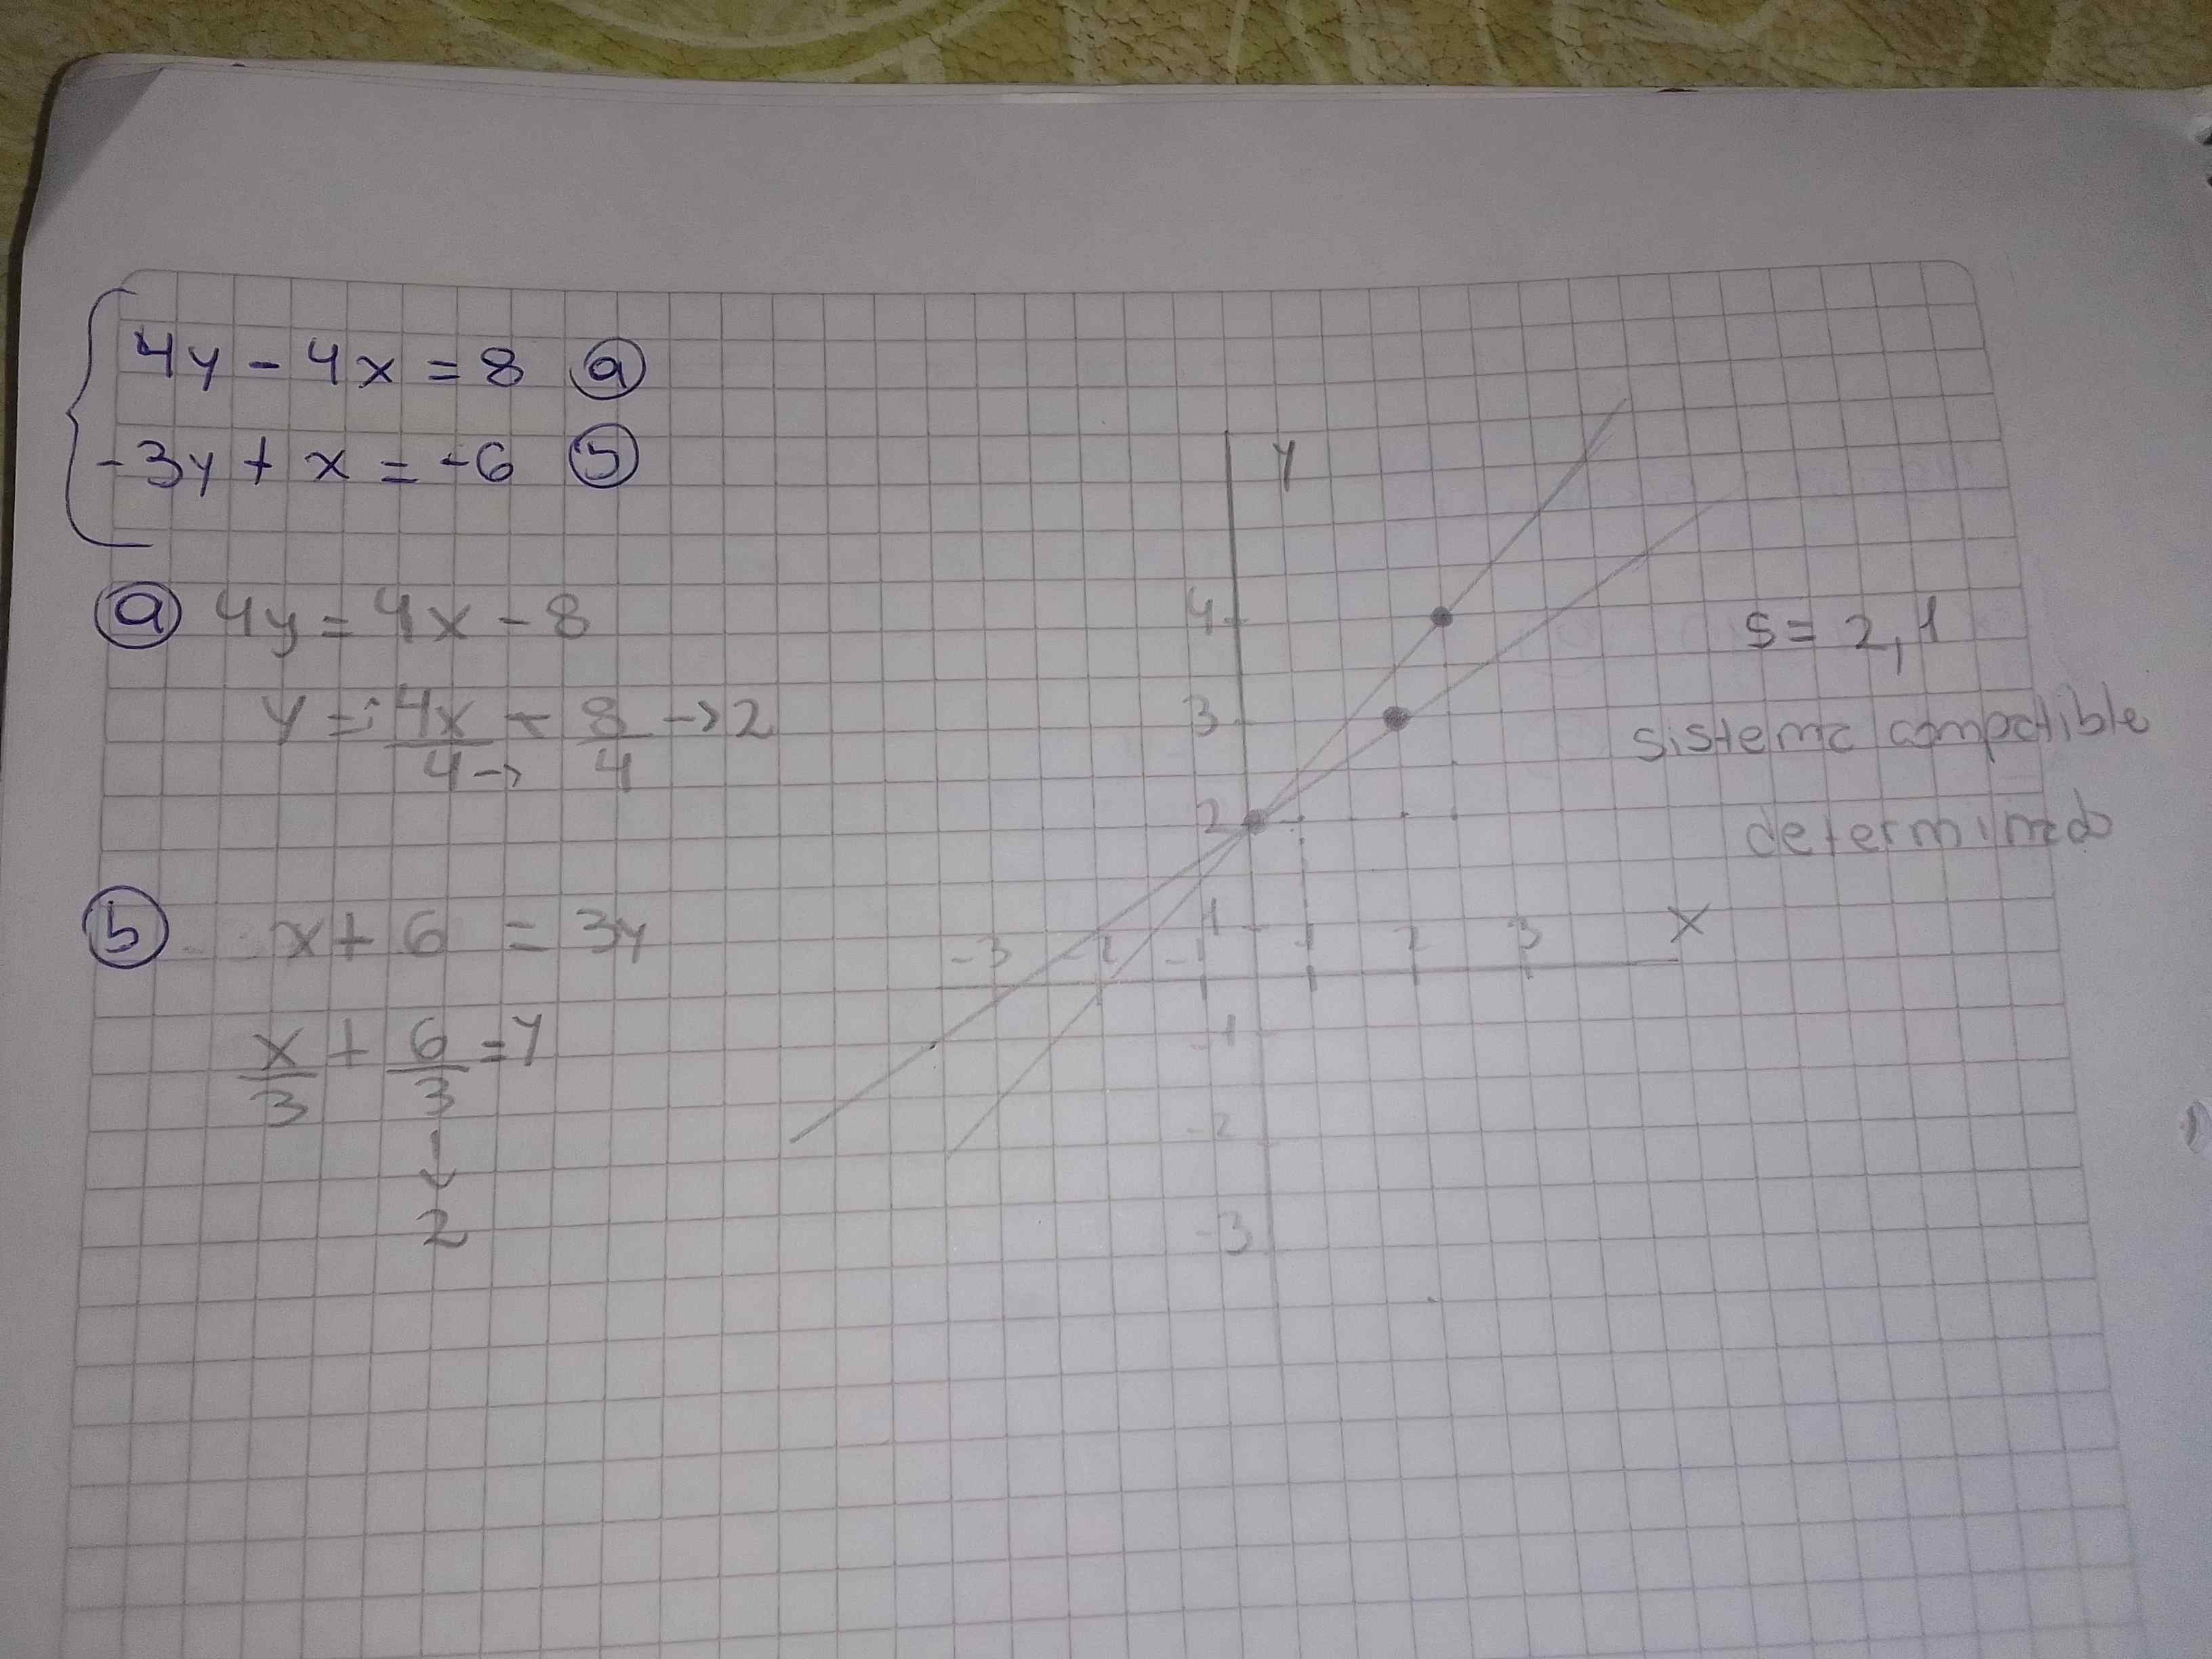 4y - 4x = 8 ⓐ
-3y + x = -6 ⓑ
ⓐ 4y = 4x - 8
y = 4x/4 → - 8/4 → 2
ⓑ x + 6 = 3y
x/3 + 6/3 = y
↓
2
y
4
3
2
1
-3 -2 -1 1 2 3 x
-1
-2
-3
S = 2, 1
sistema compatible
determinado